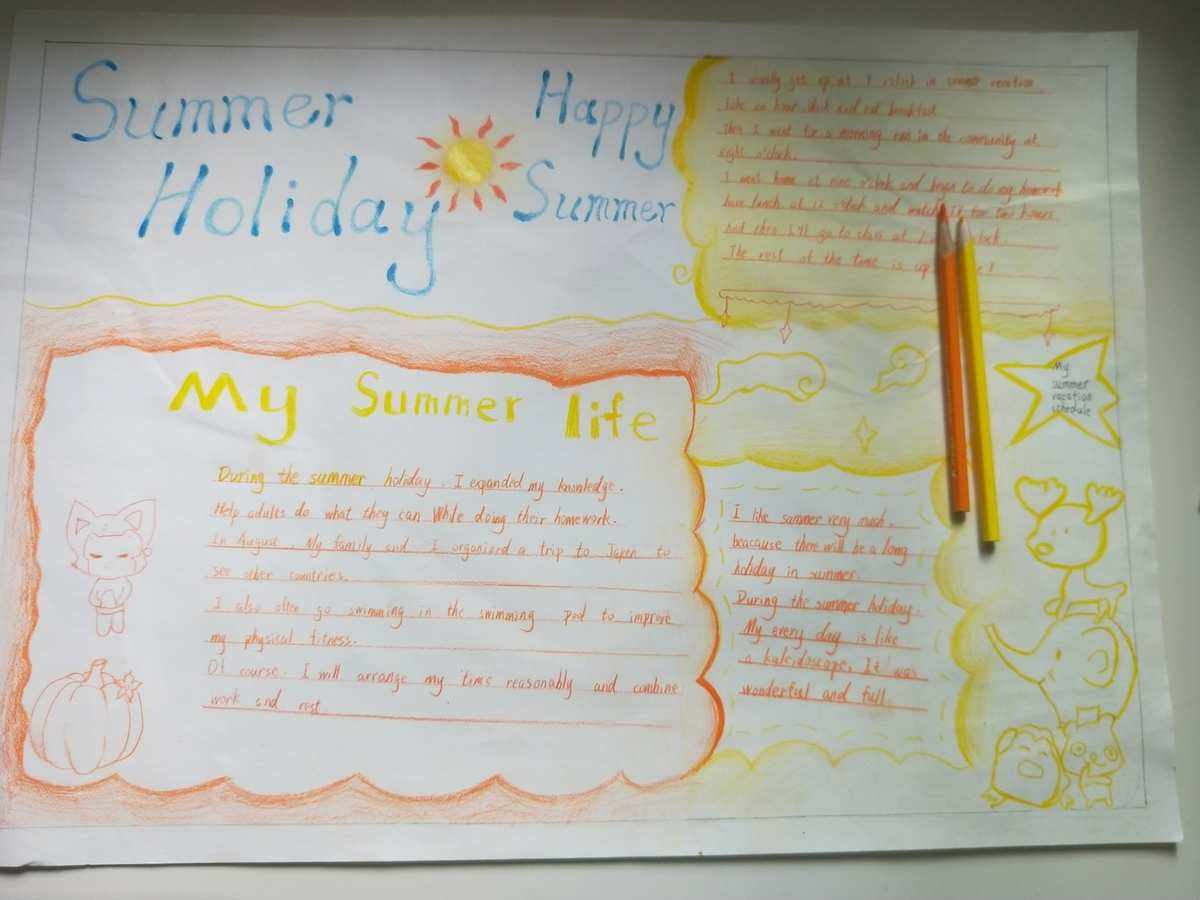 Summer
Holiday
Happy
Summer
I usually get up at 7 o'clock in summer vacation.
Take an hour wash and eat breakfast
Then I went for a morning run in the community at
eight o'clock.
I went home at nine o'clock and began to do my homework
have lunch at 12 o'clock and watch TV for two hours
and then I'll go to class at
The rest of the time is up
My
summer
vacation
schedule
My Summer life
During the summer holiday. I expanded my knowledge.
Help adults do what they can While doing their homework.
In August. My family and I organized a trip to Japen to
see other countries.
I also often go swimming in the swimming pool to improve
my physical fitness.
Of course. I will arrange my time reasonably and combine
work and rest
I like summer very much.
beacause there will be a long
holiday in summer.
During the summer holiday.
My every day is like
a kaleidoscope. It was
wonderful and full.